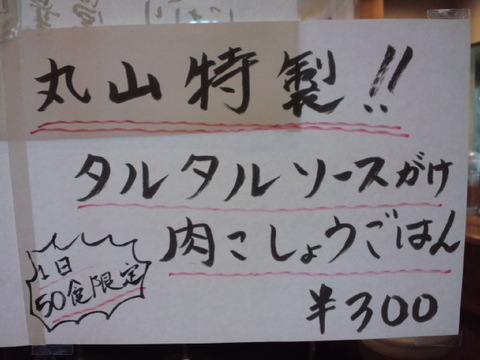 丸山特製!!
タルタルソースがけ
肉こしょうごはん
1日
50食限定
¥300